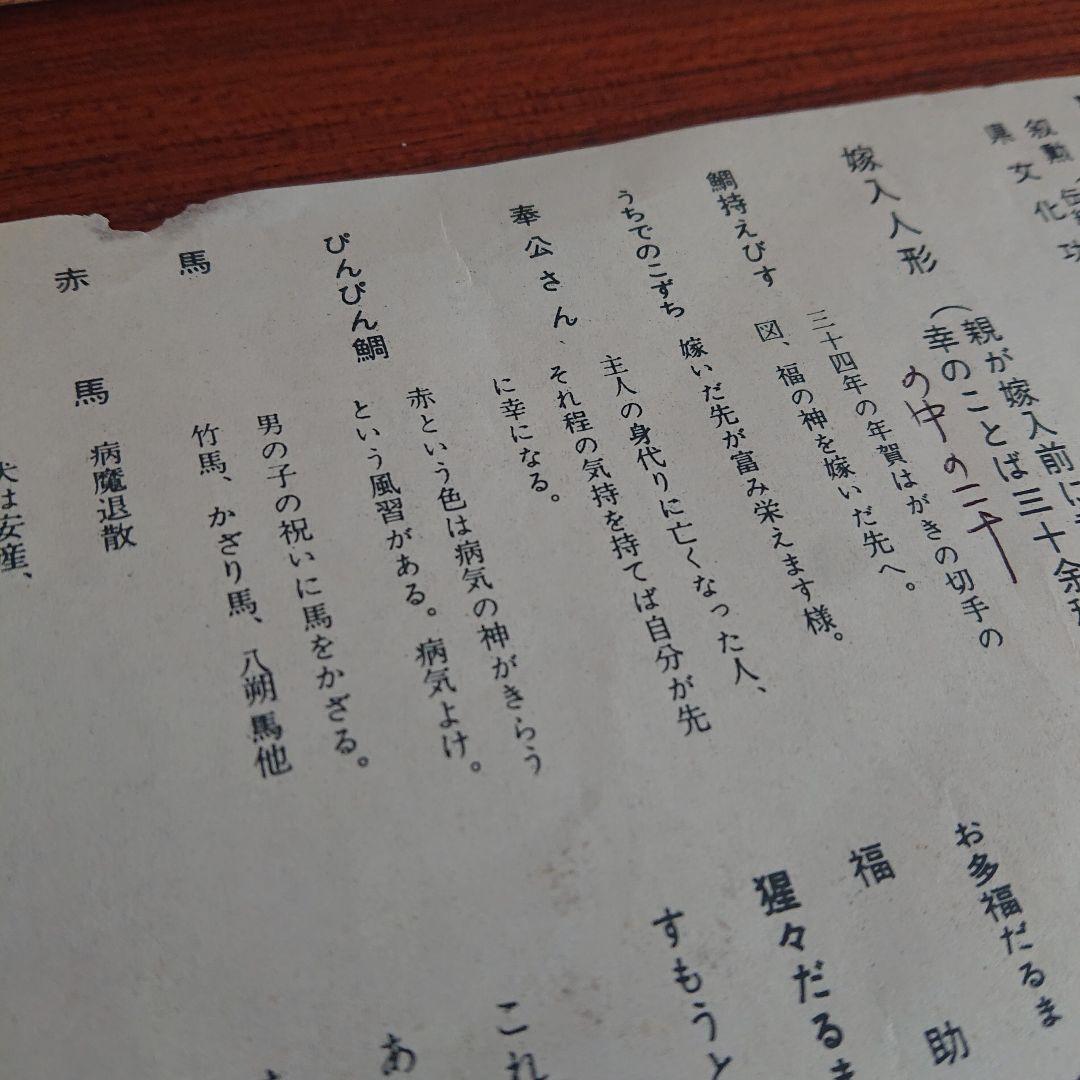 叙勲
県文化功
嫁入人形
(親が嫁入前に
幸のことば三十余
の中の二十
鯛持えびす
三十四年の年賀はがきの切手の
図、福の神を嫁いだ先へ。
うちでのこずち
嫁いだ先が富み栄えます様。
奉公さん
主人の身代りに亡くなった人、
それ程の気持を持てば自分が先
に幸になる。
ぴんぴん鯛
赤という色は病気の神がきらう
という風習がある。病気よけ。
馬
男の子の祝いに馬をかざる。
竹馬、かざり馬、八朔馬他
赤馬
病魔退散
犬は安産、
お多福だるま
福助
猩々だるま
すもうと
これ
あ